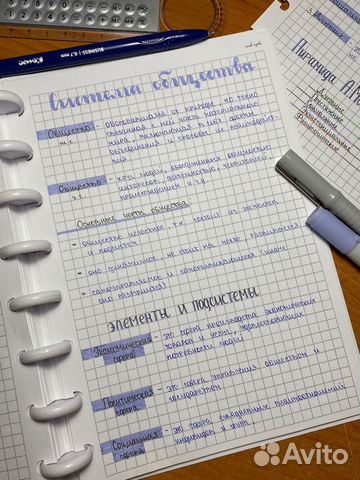 BUSINESS 0,7 mm
Пирамида
Система общества
Общество
ш.с.
- обособившаяся от природы, но тесно
связанная с ней часть материального
мира, включающая в себя формы
объединения и способы их взаимодейст-
вия
Общество
у.с.
- круг людей, объединённых общностью
интересов, деятельностью, территорией,
происхождением и т.д.
Основные черты общества
- общество целостное, т.к. состоит из элементов
и подсистем
- оно динамичное, не стоит на месте, развивается
- самоуправляемое и самоорганизующееся (иначе
оно разрушится)
ЭЛЕМЕНТЫ И ПОДСИСТЕМЫ
Экономическая
сфера
- это сфера производства экономических
товаров и услуг, удовлетворяющих
потребности людей
Политическая
сфера
- это сфера управления обществом и
государством
Социальная
сфера
- это сфера ежедневных взаимоотношений
индивидов и групп
Avito